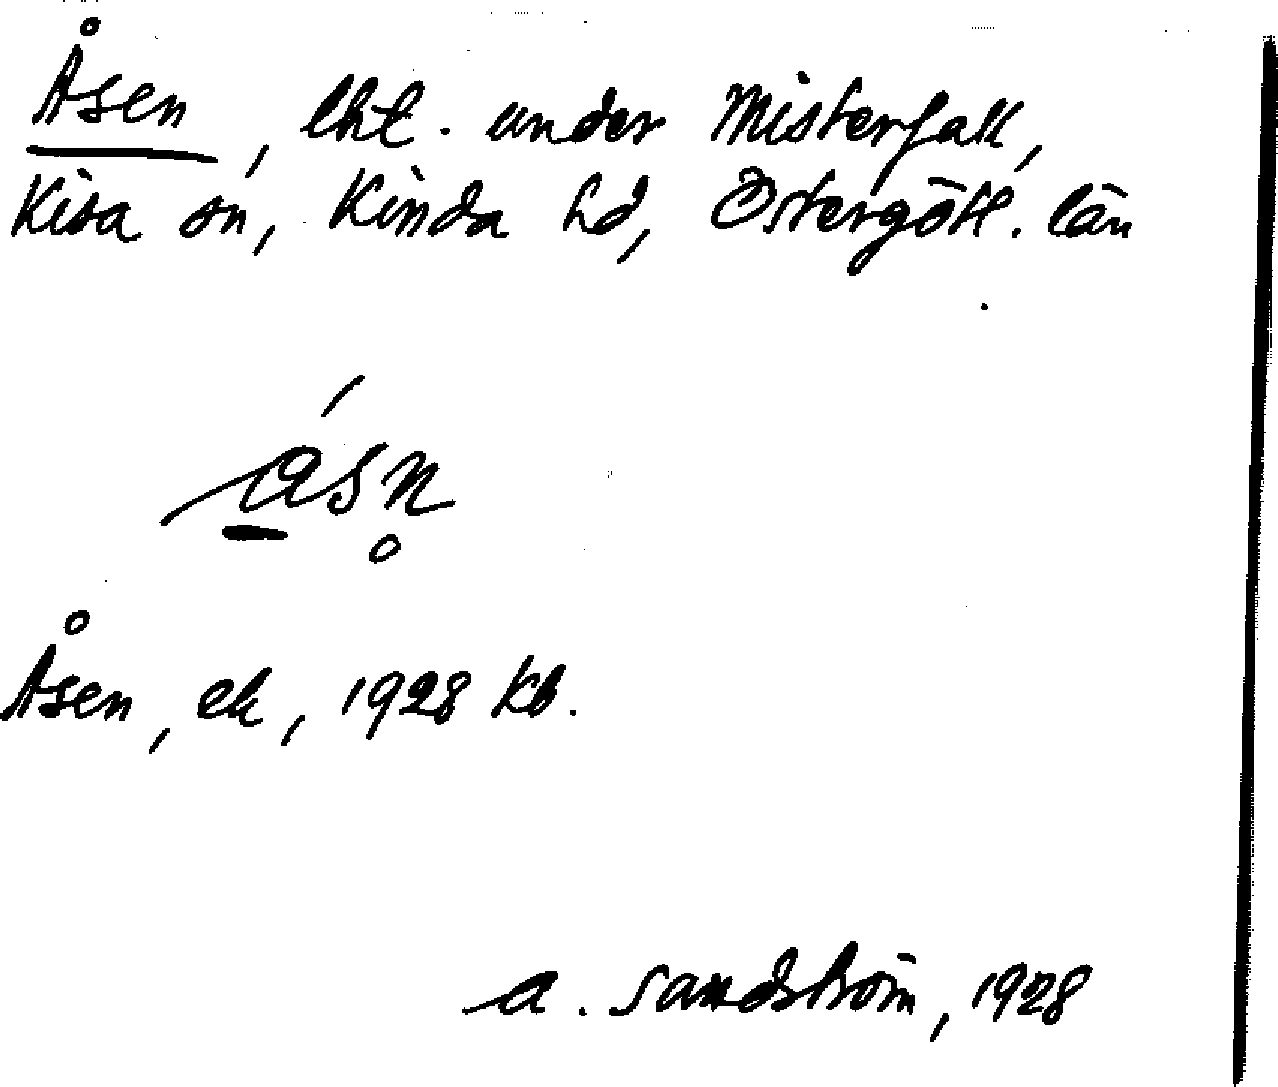 Åsen, lht. under Misterfall,
Kisa sn, Kinda hd, Östergötl. län
åsn̥
Åsen, ek, 1928 Kb.
A. Sandström, 1928